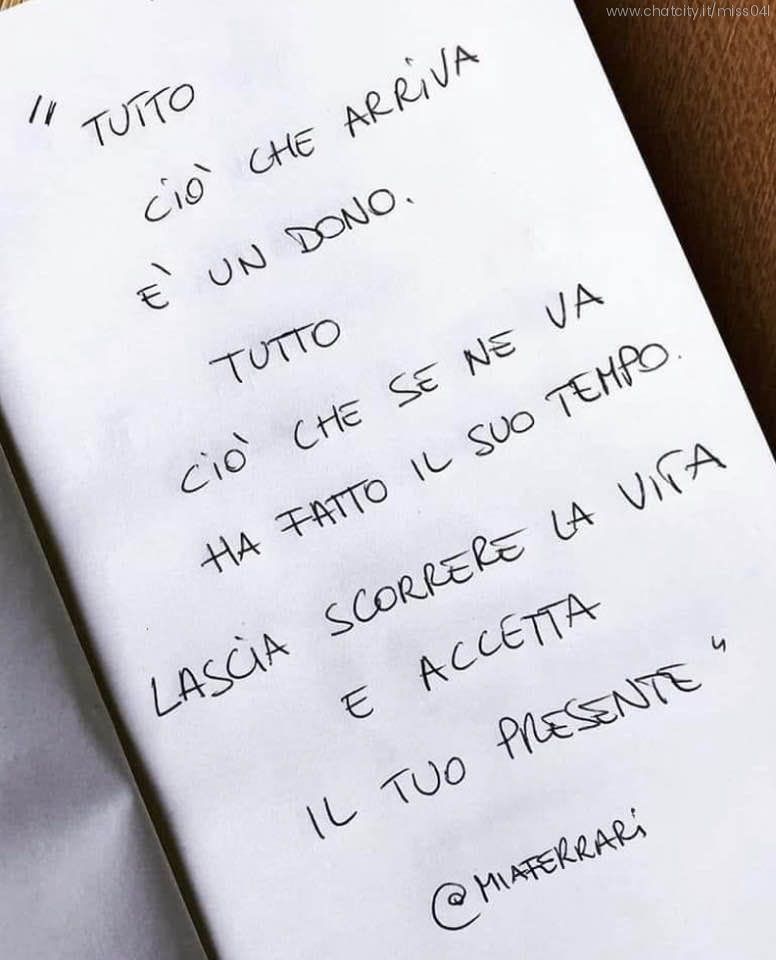 www.chatcity.it/miss04l
" TUTTO
CIÒ CHE ARRIVA
È UN DONO.
TUTTO
CIÒ CHE SE NE VA
HA FATTO IL SUO TEMPO.
LASCIA SCORRERE LA VITA
E ACCETTA
IL TUO PRESENTE "
@MIAFERRARI